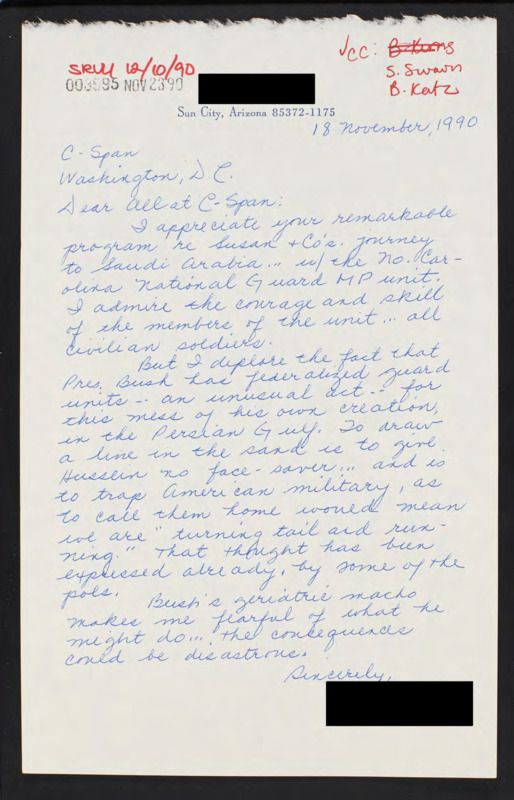 √CC: B. Kurns
SRW 12/10/90
S. Swain
003895 NOV 23 90
B. Katz
Sun City, Arizona 85372-1175
18 November, 1990
C-Span
Washington, D.C.
Dear all at C-Span:
I appreciate your remarkable
program re Susan + Co's. journey
to Saudi Arabia... w/ the No. Car-
olina National Guard MP unit.
I admire the courage and skill
of the members of the unit... all
civilian soldiers.
But I deplore the fact that
Pres. Bush has federalized guard
units -- an unusual act -- for
this mess of his own creation,
in the Persian Gulf. To draw
a line in the sand is to give
Hussein no face-saver... and is
to trap American military, as
to call them home would mean
we are "turning tail and run-
ning." That thought has been
expressed already, by some of the
pols.
Bush's geriatric macho
makes me fearful of what he
might do... the consequences
could be disastrous.
Sincerely,